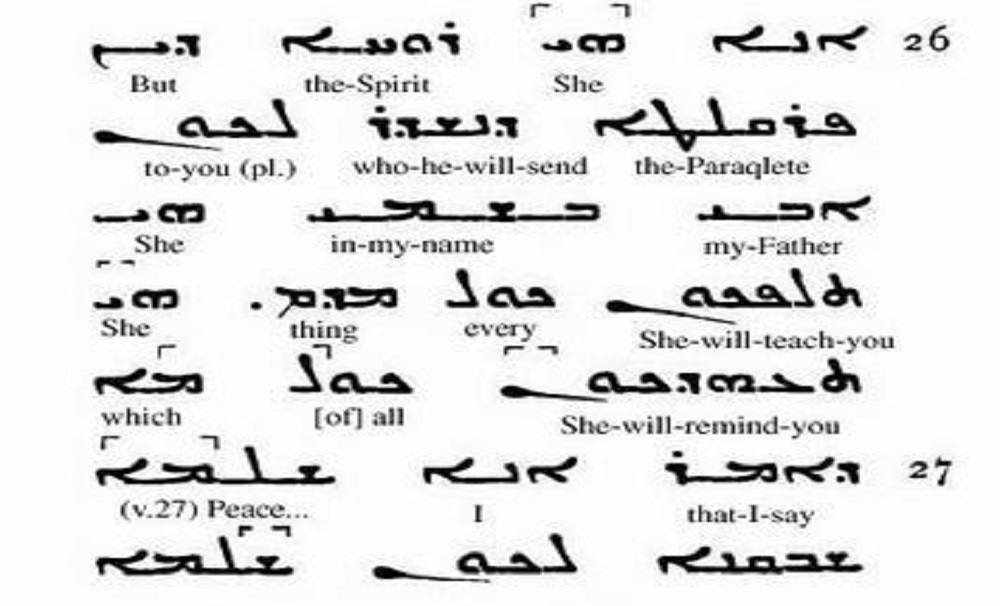 26 ܐܢܐ ܗܝ ܪܘܚܐ ܕܝܢ
But the-Spirit She
ܦܪܩܠܛܐ ܕܢܫܕܪ ܠܟܘܢ
to-you (pl.) who-he-will-send the-Paraqlete
ܐܒܝ ܒܫܡܝ ܗܝ
She in-my-name my-Father
ܬܠܦܟܘܢ ܟܘܠ ܡܕܡ. ܗܝ
She thing every She-will-teach-you
ܬܥܗܕܟܘܢ ܟܘܠ ܡܐ
which [of] all She-will-remind-you
27 ܕܐܡܪ ܐܢܐ ܫܠܡܐ
(v.27) Peace... I that-I-say
ܫܒܩܢܐ ܠܟܘܢ ܫܠܡܐ